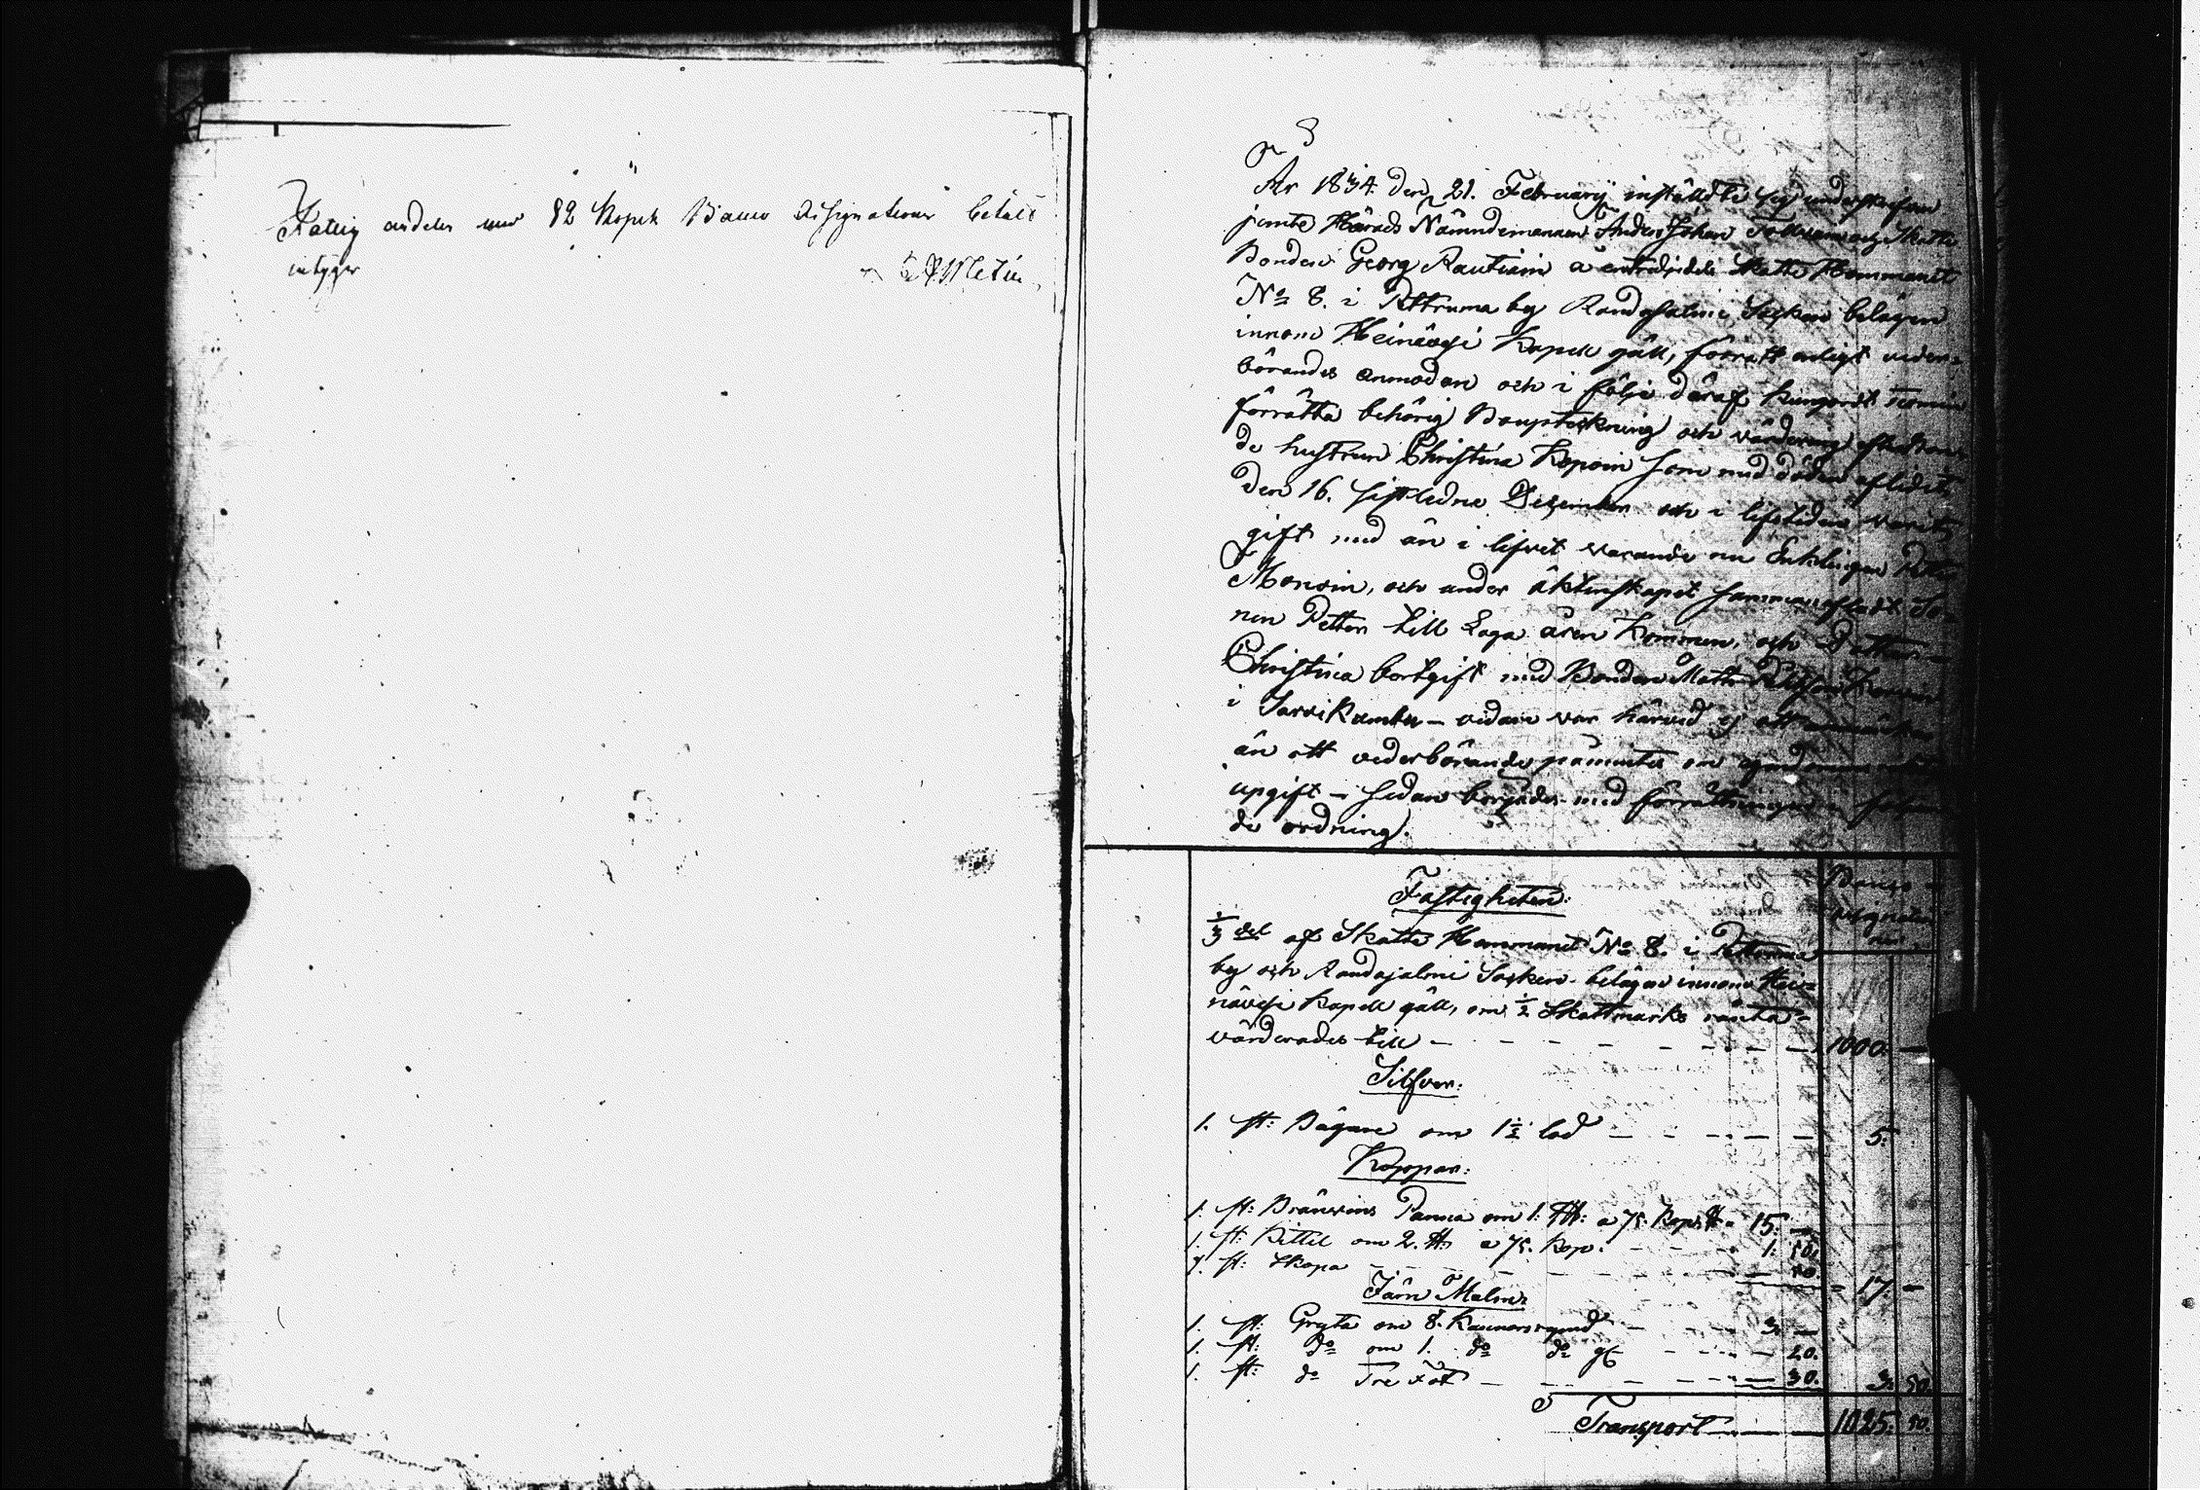 Fattig andelen med 82 Kopek Banco Assignationer betalt
intygar
År 1834 den 21. February instälde sig undertecknad
jemte Härads Nämndemannen Anders Johan och Skatte
Bonden Georg Rautiain å Skatte Hemmanet
No 8. i Pettruma by Randasalmi Socken belägen
innom Heinävesi Kapell gäll, för att enligt veder-
börandes anmodan och i följe däraf kungordt
förrätta behörig Boupteckning och värdering efter
de hustrun Christina Kopoin som med döden aflidit
den 16. sistledne December och i lifstiden varit
gift med än i lifvet varande nu Enklingen Petter
Monoin, och under äktenskapet sammanafladt So-
nen Petter till Laga åren kommen, och Dottren
Christina bortgift med Bonden Matts
i Sarvikumbu – vidare var härvid ej att anmärka
än att vederbörande påmintes om
upgift – sedan börjades med förrättningen i följan
de ordning.
Fastigheten:
Banco
Assignatio
ner
1/3 del af Skatte Hemmanet No 8. i Pettruma
by och Randasalmi Socken belägen innom Hei=
nävesi Kapell gäll, om 1/2 Skattmarks ränta
värderades till – 1000. –
Silfver:
1. st: Bägare om 1 1/2 lod – 5.
Koppar:
1. st: Bränvins Panna om 1. a 75. Kop. 15. –
1. st: Kittel om 2. a 75. Kop. – 1. 50.
1. st: Skopa – 50. 17. –
Järn Malm:
1. st: Gryta om 8. Kannors rymd – 3. –
1. st: do om 1. do do – 20.
1. st: do Tre Fot – 30. 3. 50.
Transport 1025. 50.